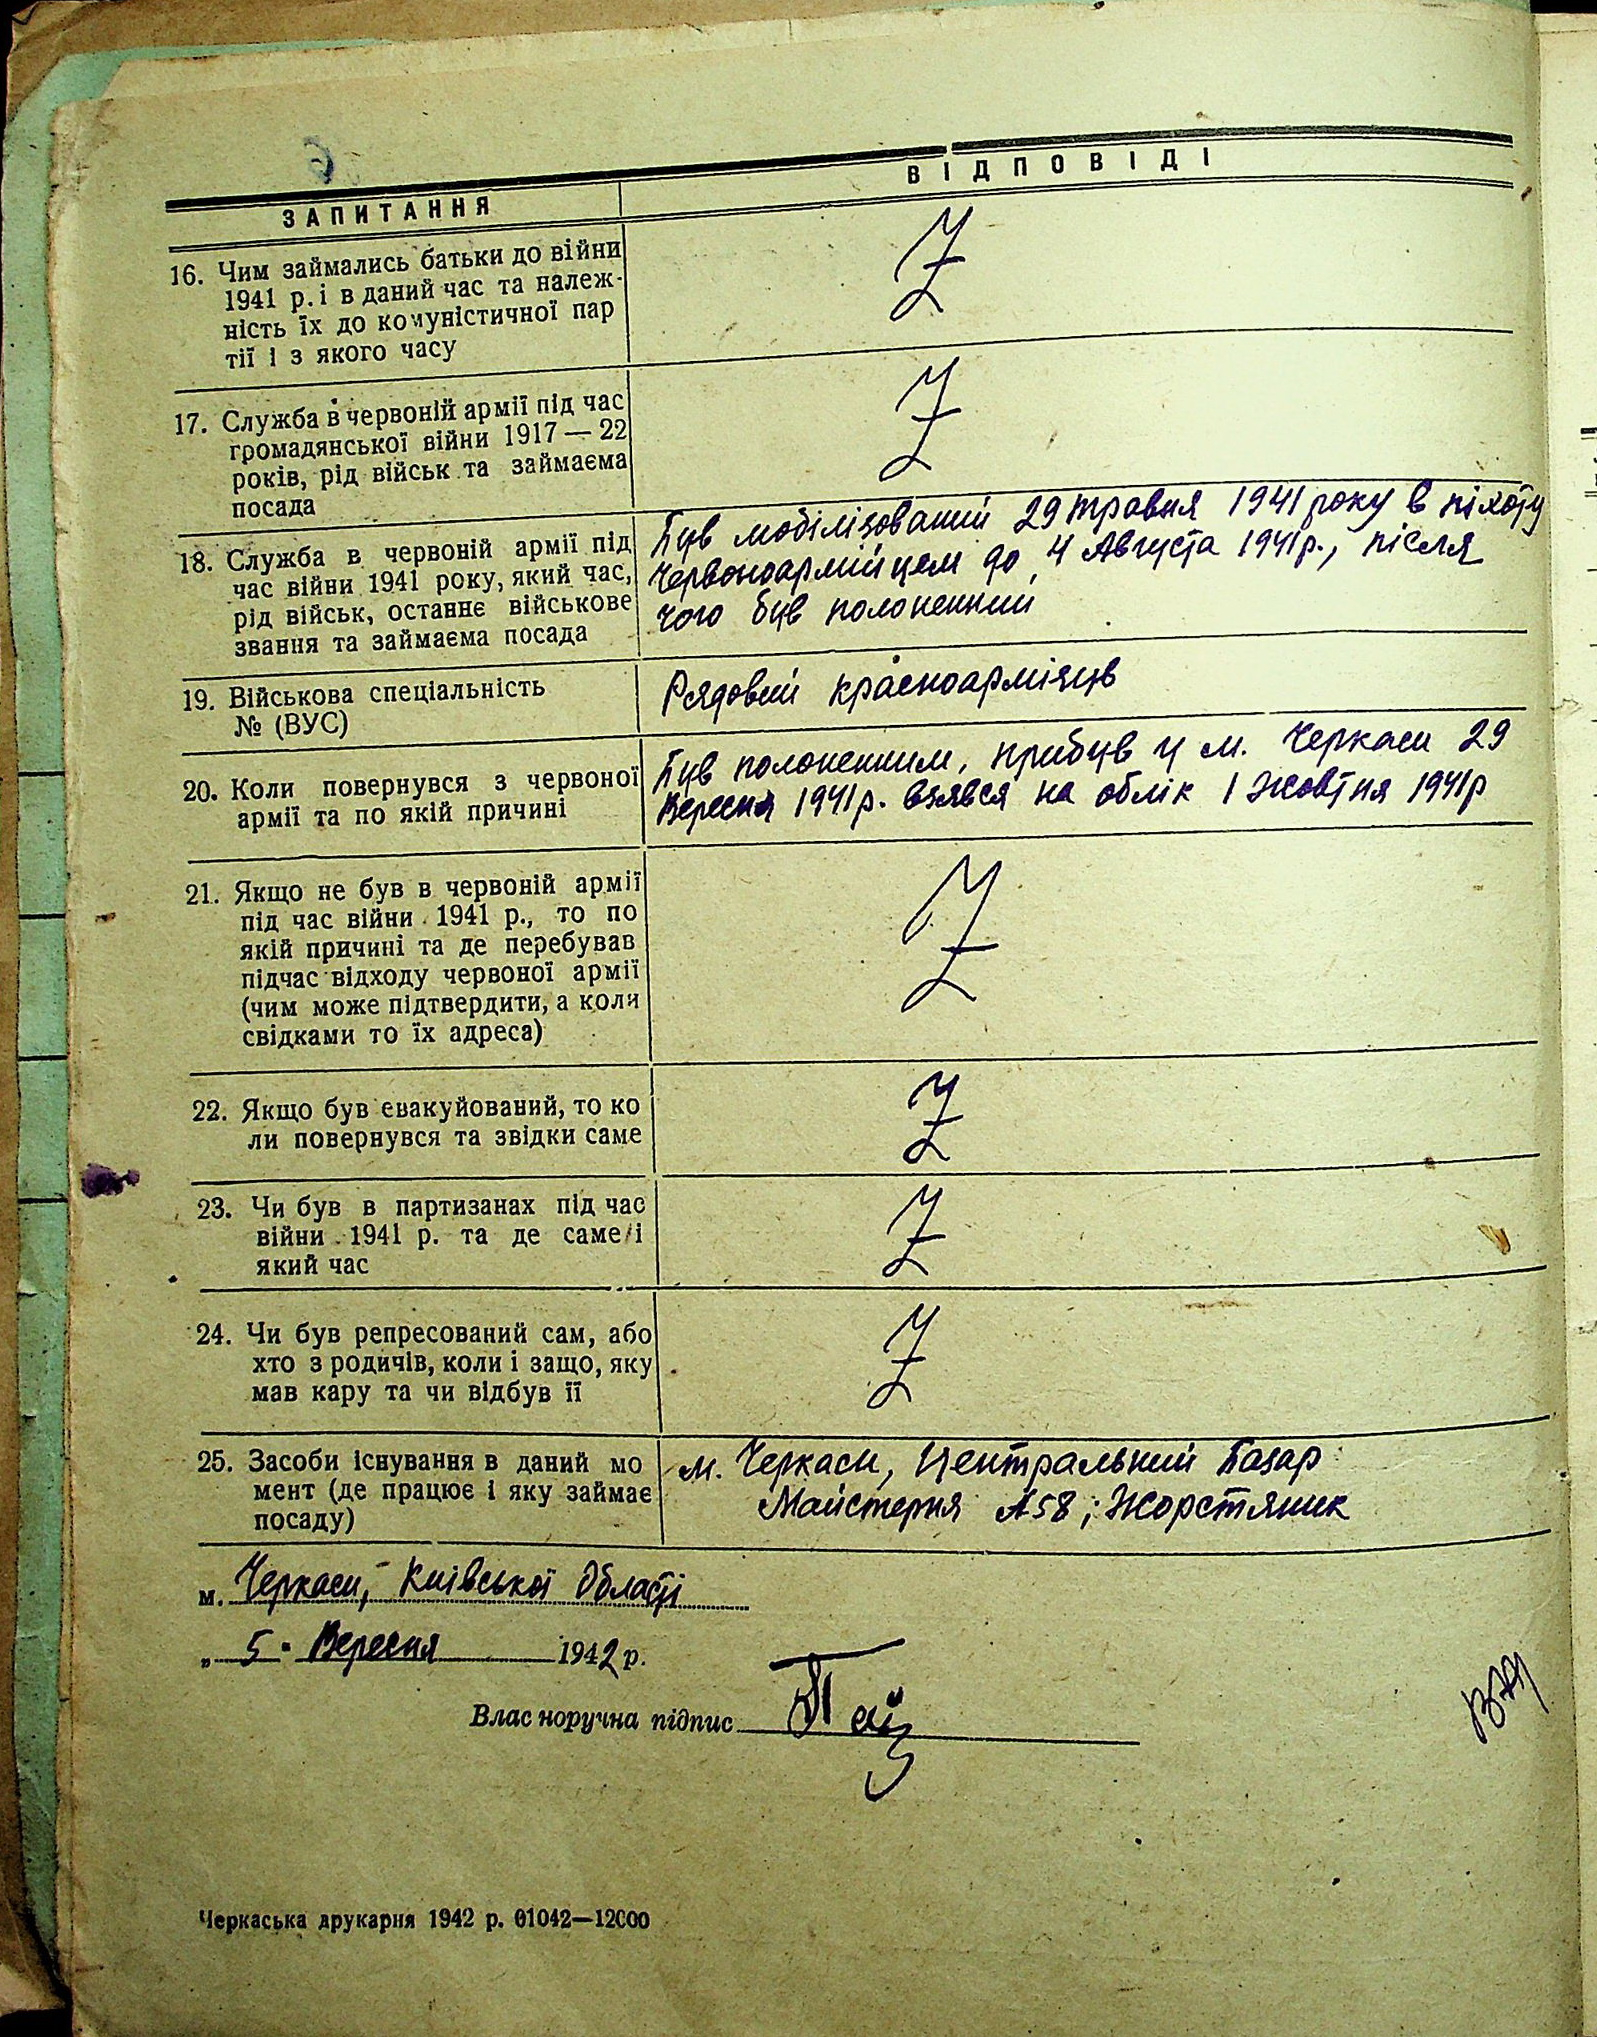 ЗАПИТАННЯ
ВІДПОВІДІ
16. Чим займались батьки до війни
1941 р. і в даний час та належ-
ність їх до комуністичної пар
тії і з якого часу
17. Служба в червоній армії під час
громадянської війни 1917 — 22
років, рід військ та займаєма
посада
18. Служба в червоній армії під
час війни 1941 року, який час,
рід військ, останнє військове
звання та займаєма посада
Був мобілізований 29 травня 1941 року в піхоту
червоноармійцем до 4 Августа 1941р., після
чого був полоненний
19. Військова спеціальність
№ (ВУС)
Рядовий красноармієць
20. Коли повернувся з червоної
армії та по якій причині
Був полоненним, прибув у м. Черкаси 29
Вересня 1941р. взявся на облік 1 Жовтня 1941р
21. Якщо не був в червоній армії
під час війни 1941 р., то по
якій причині та де перебував
підчас відходу червоної армії
(чим може підтвердити, а коли
свідками то їх адреса)
22. Якщо був евакуйований, то ко
ли повернувся та звідки саме
23. Чи був в партизанах під час
війни 1941 р. та де саме і
який час
24. Чи був репресований сам, або
хто з родичів, коли і защо, яку
мав кару та чи відбув її
25. Засоби існування в даний мо
мент (де працює і яку займає
посаду)
м. Черкаси, Центральний Базар
Майстерня А58; Жорстяник
м. Черкаси, Київської Області
„ 5 " Вересня 1942 р.
Власноручна підпис
Черкаська друкарня 1942 р. 01042—12000